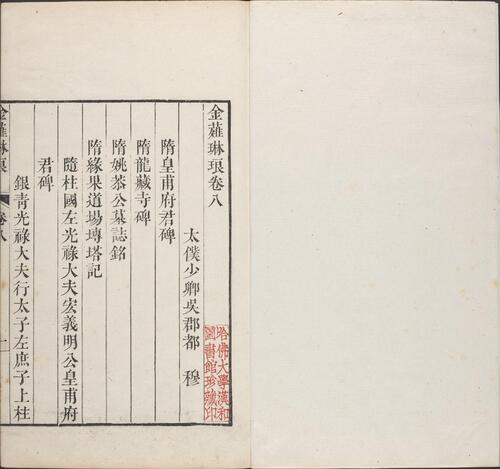 金薤琳琅卷八
太僕少卿吳郡都 穆
隋皇甫府君碑
隋龍藏寺碑
隋姚恭公墓誌銘
隋緣果道場塼塔記
隨柱國左光祿大夫宏義明公皇甫府
君碑
銀青光祿大夫行太子左庶子上柱
金薤琳琅 卷八 一
哈佛大學漢和
圖書館珍藏印